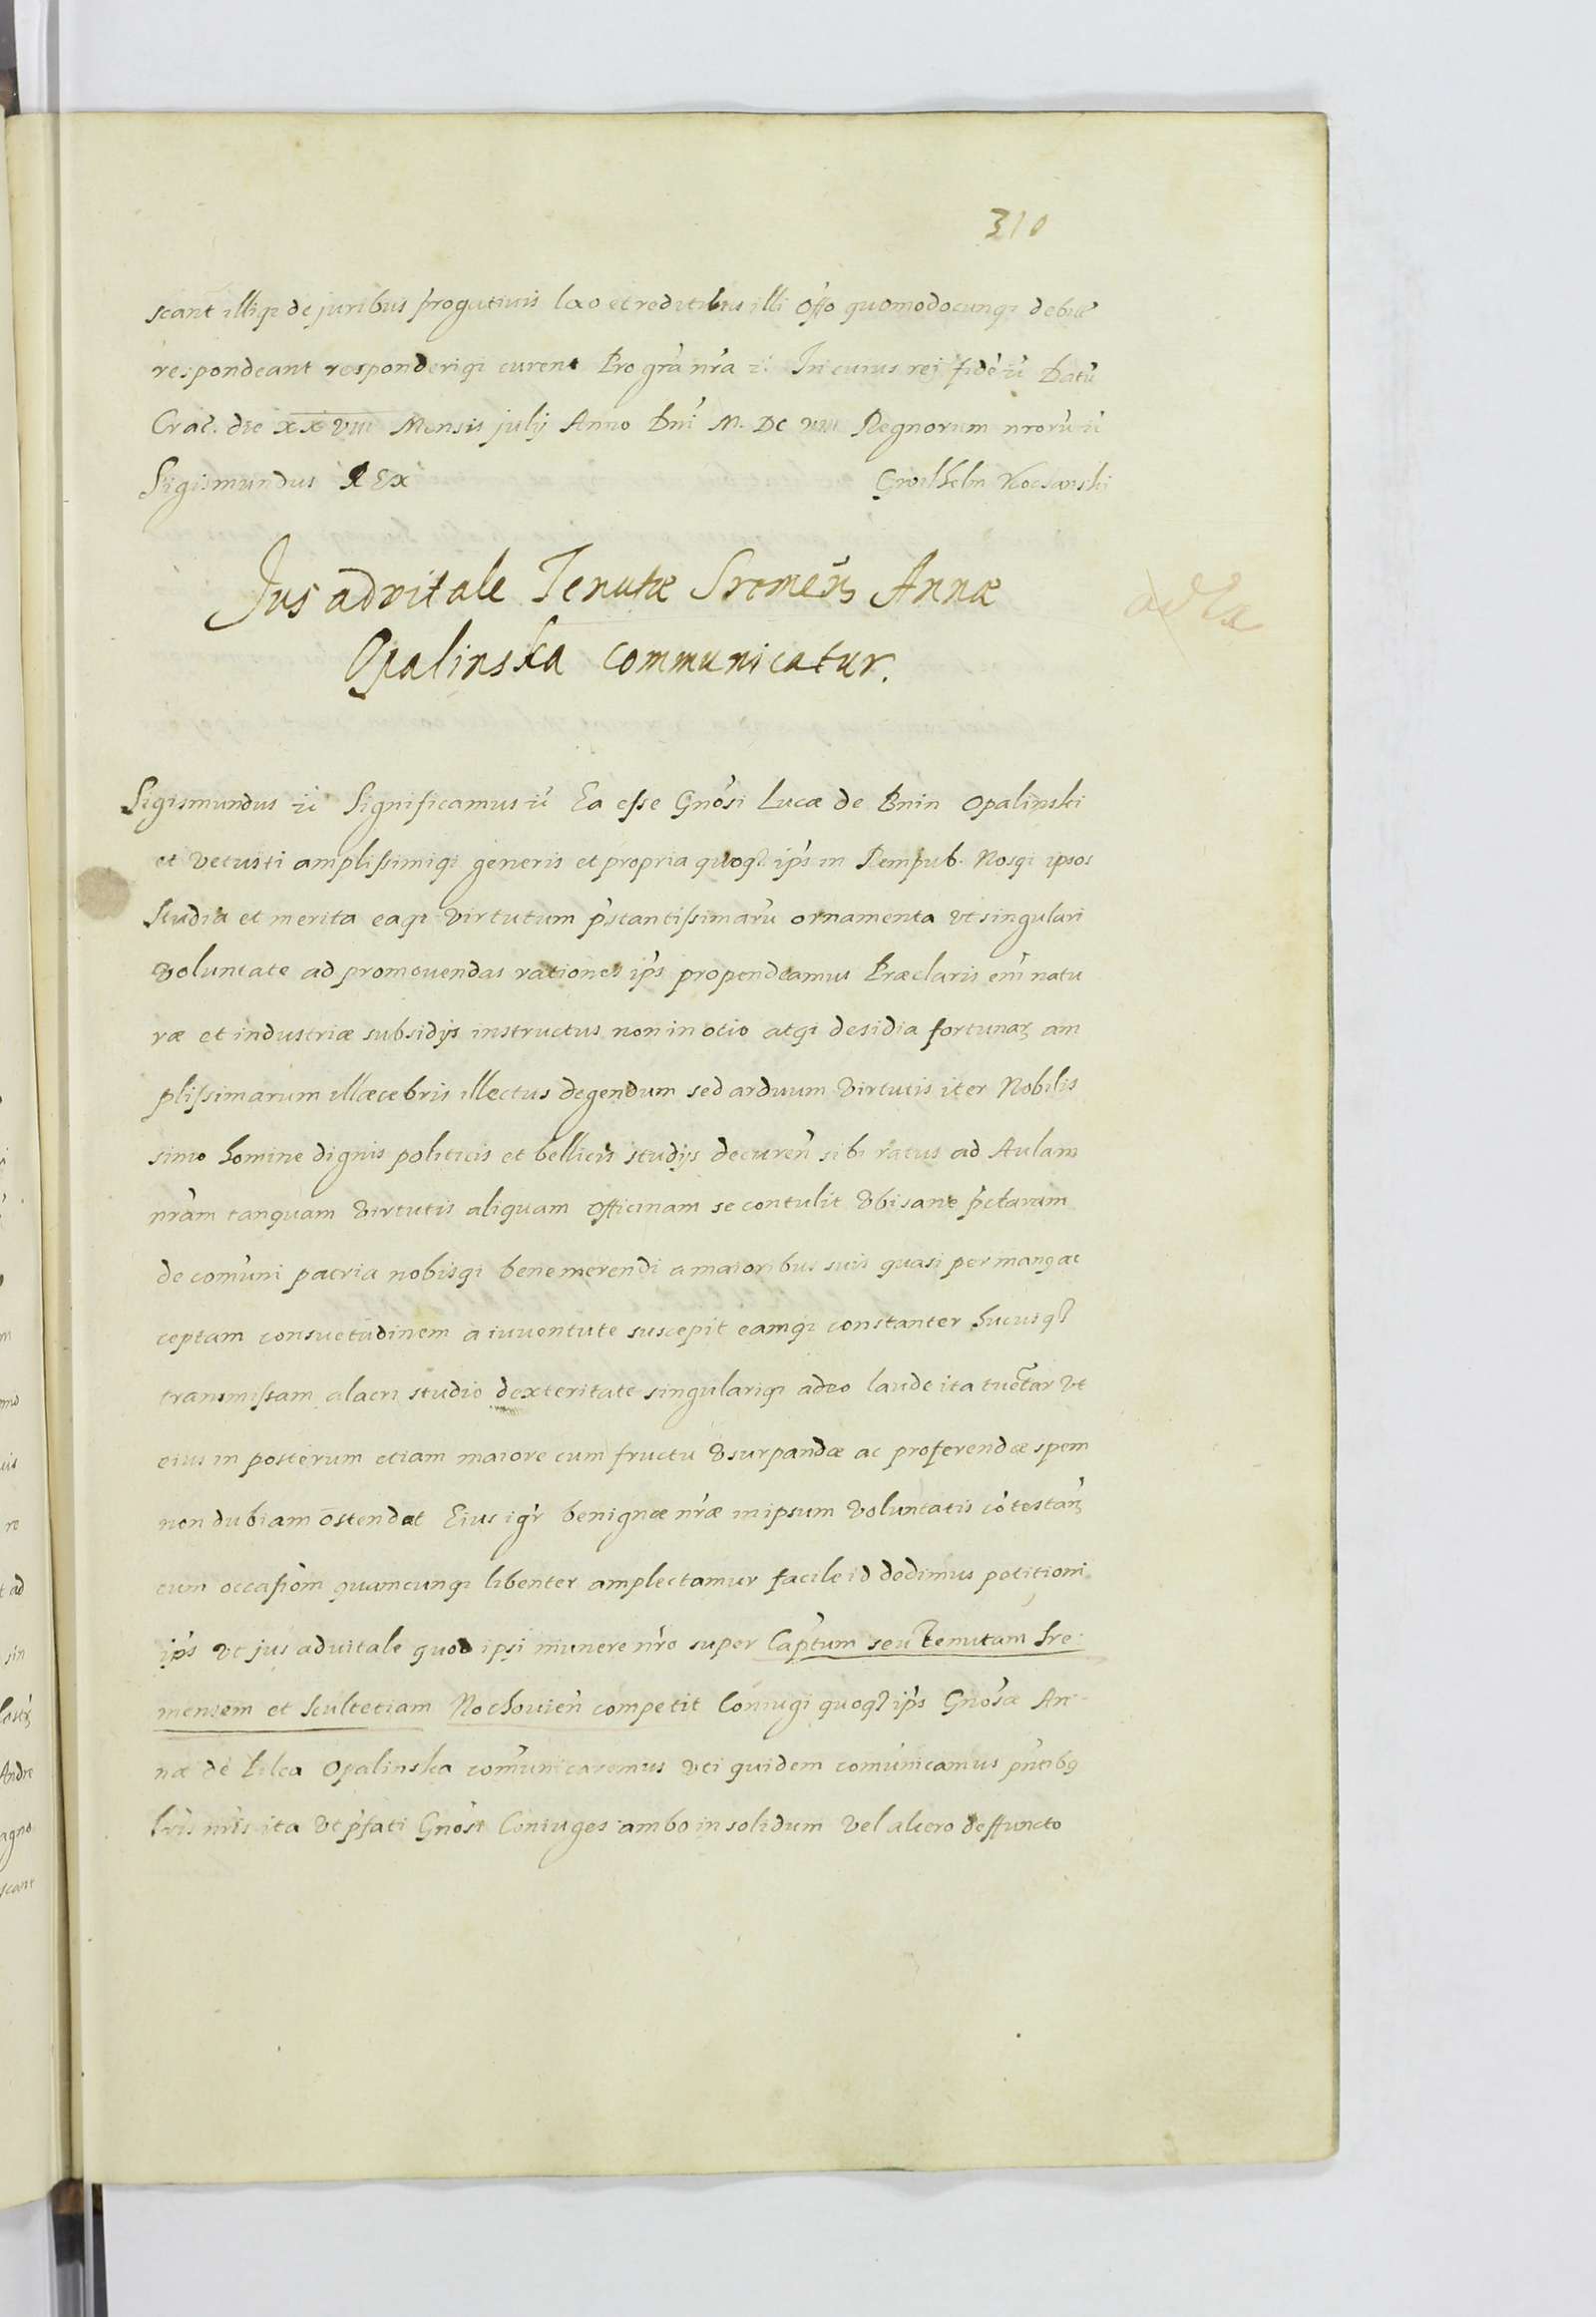 310
scant illiqz de juribus progativis loco et reditibus illi Offo quomodocunqz debitè
respondeant responderiqz curent Pro gra nra &. In cuius rej fidè & Datū
Crac. die XXVIII Mensis julij Anno Dni M. DC VIII Regnorum nrorū &
Sigismundus REX
Jus advitale Tenutæ Sremen Annæ
Opalinska communicatur.
Sigismundus & Significamus & Ea esse Gnosi Lucæ de Bnin Opalinski
et vetusti amplissimiqz generis et propria quoqz ips in Rempub. Nosqz ipsos
studia et merita eaqz virtutum pstantissimarū ornamenta vt singulari
voluntate ad promovendas rationes ips propendeamus Præclaris em natu
ræ et industriæ subsidijs instructus non in otio atqz desidia fortunar am
plissimarum illæcebris illectus degendum sed arduum virtutis iter Nobilis
simo homine dignis politicis et bellicis studijs decuren sibi ratus ad Aulam
nram tanquam virtutis aliquam officinam se contulit vbi sane pclaram
de comuni patria nobisqz benemerendi a maioribus suis quasi per manq ac
ceptam consvetudinem a iuventute suscepit eamqz constanter hucusqz
transmissam alacri studio dexteritate singulariqz adeo laude ita tuetar vt
eius in posterum etiam maiore cum fructu vsurpandæ ac proferendæ spem
non dubiam ostendat Eius igr benignæ nræ in ipsum voluntatis cōtestan
cum occasiōm quamcunqz libenter amplectamur facile id dedimus petitioni
ips vt jus advitale quod ipsi munere nro super Captum seu tenutam Sre-
mensem et scultetiam Nochovien competit Coniugi quoqz ips Gnosæ An-
næ de Opalinska comunicaremus vti quidem comunicamus pntibq
lris nris ita vt pfati Gnosi Coniuges ambo in solidum vel altero deffuncto